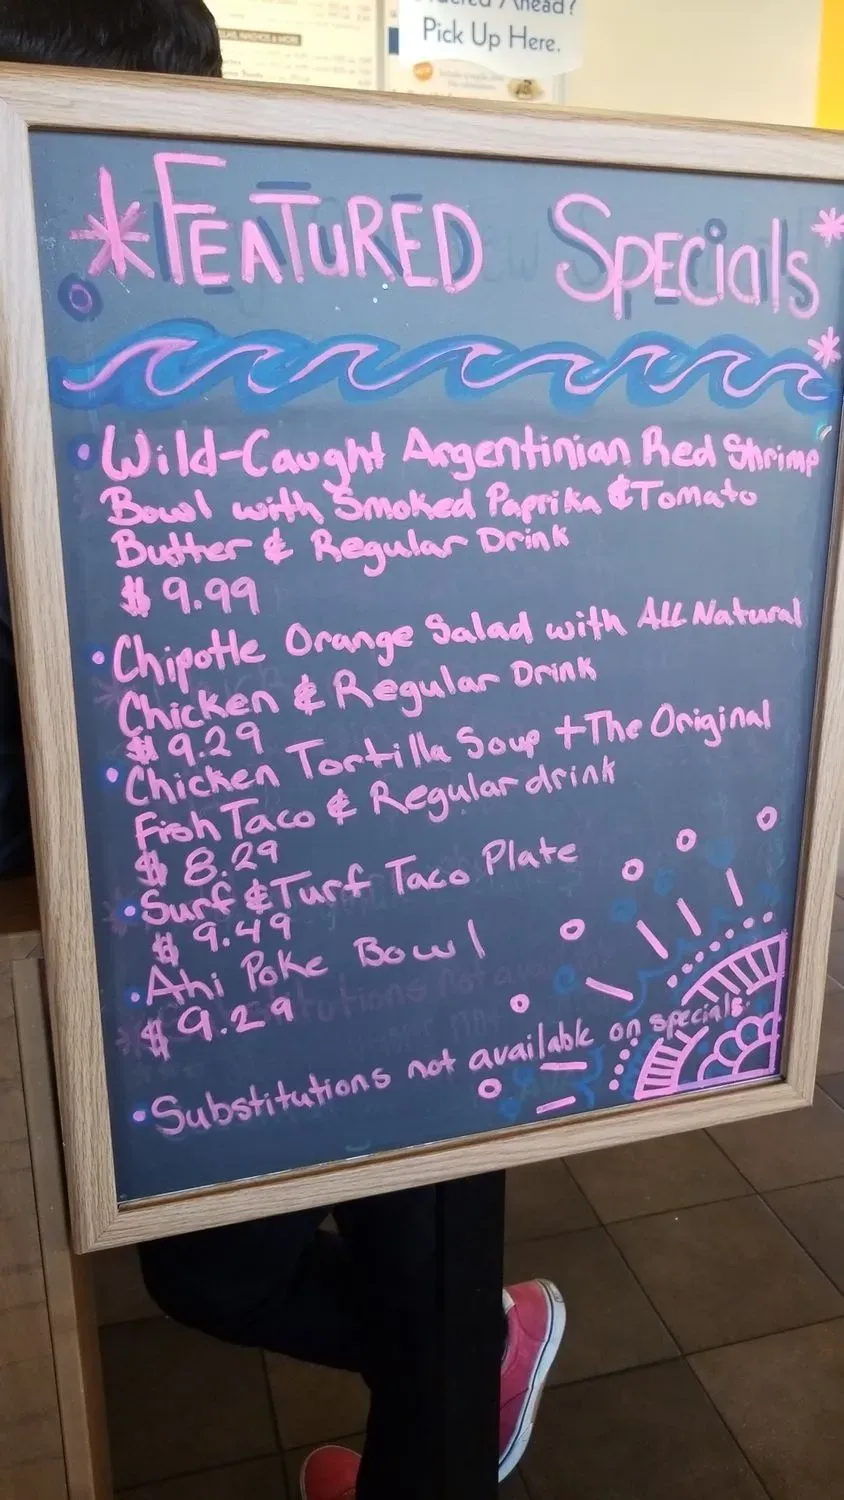 Ordered Ahead?
Pick Up Here.
*FEATURED SPECIALS*
• Wild-Caught Argentinian Red Shrimp
Bowl with Smoked Paprika & Tomato
Butter & Regular Drink
$9.99
• Chipotle Orange Salad with All Natural
Chicken & Regular Drink
$9.29
• Chicken Tortilla Soup + The Original
Fish Taco & Regular drink
$8.29
• Surf & Turf Taco Plate
$9.49
• Ahi Poke Bowl
$9.29
• Substitutions not available on specials.